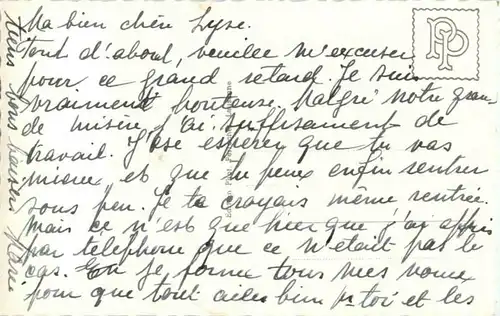 Ma bien chère Lyse.
Tout d'abord, veuillez m'excuser
pour ce grand retard. Je suis
vraiment honteuse. Malgré notre gran
de misère j'ai suffisament de
travail. J'ose espérer que tu vas
mieux et que tu peux enfin rentrer
sous peu. Je te croyais même rentrée.
Mais ce n'est que hier que j'ai appris
par téléphone que ce n'était pas le
cas. Je forme tous mes voeux
pour que tout aille bien pr toi et les